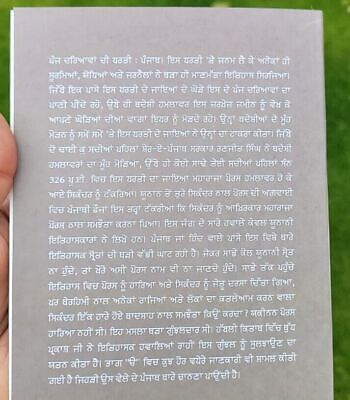 ਪੰਜ ਦਰਿਆਵਾਂ ਦੀ ਧਰਤੀ : ਪੰਜਾਬ। ਇਸ ਧਰਤੀ 'ਤੇ ਜਨਮ ਲੈ ਕੇ ਅਨੇਕਾਂ ਹੀ
ਸੂਰਮਿਆਂ, ਯੋਧਿਆਂ ਅਤੇ ਜਰਨੈਲਾਂ ਨੇ ਬੜਾ ਹੀ ਮਾਣਮੱਤਾ ਇਤਿਹਾਸ ਸਿਰਜਿਆ।
ਜਿੱਥੇ ਇਕ ਪਾਸੇ ਇਸ ਧਰਤੀ ਦੇ ਜਾਇਆਂ ਦੇ ਘੋੜੇ ਇਸ ਦੇ ਪੰਜ ਦਰਿਆਵਾਂ ਦਾ
ਪਾਣੀ ਪੀਂਦੇ ਰਹੇ, ਉਥੇ ਹੀ ਬਦੇਸ਼ੀ ਹਮਲਾਵਰ ਇਸ ਜ਼ਰਖ਼ੇਜ਼ ਜ਼ਮੀਨ ਨੂੰ ਵੇਖ ਕੇ
ਆਪਣੇ ਘੋੜਿਆਂ ਦੀਆਂ ਵਾਗਾਂ ਇਧਰ ਨੂੰ ਮੋੜਦੇ ਰਹੇ। ਉਨ੍ਹਾਂ ਬਦੇਸ਼ੀਆਂ ਦੇ ਮੂੰਹ
ਮੋੜਨ ਨੂੰ ਸਮੇਂ ਸਮੇਂ 'ਤੇ ਇਸ ਧਰਤੀ ਦੇ ਜਾਇਆਂ ਨੇ ਉਨ੍ਹਾਂ ਦਾ ਟਾਕਰਾ ਕੀਤਾ। ਜਿੱਥੇ
ਦੋ ਢਾਈ ਕੁ ਸਦੀਆਂ ਪਹਿਲਾਂ ਸ਼ੇਰ-ਏ-ਪੰਜਾਬ ਸਰਕਾਰ ਰਣਜੀਤ ਸਿੰਘ ਨੇ ਬਦੇਸ਼ੀ
ਹਮਲਾਵਰਾਂ ਦਾ ਮੂੰਹ ਮੋੜਿਆ, ਉੱਥੇ ਹੀ ਕੋਈ ਸਾਢੇ ਤੇਈ ਸਦੀਆਂ ਪਹਿਲਾਂ ਸੰਨ
326 ਪੂ.ਈ. ਵਿਚ ਇਸ ਧਰਤੀ ਦਾ ਜਾਇਆ ਮਹਾਰਾਜਾ ਪੋਰਸ ਹਮਲਾਵਰ ਹੋ ਕੇ
ਆਏ ਸਿਕੰਦਰ ਨੂੰ ਟੱਕਰਿਆ। ਯੂਨਾਨ ਤੋਂ ਤੁਰੇ ਸਿਕੰਦਰ ਨਾਲ ਪੋਰਸ ਦੀ ਅਗਵਾਈ
ਵਿਚ ਪੰਜਾਬੀ ਫ਼ੌਜਾਂ ਇਸ ਤਰ੍ਹਾਂ ਟੱਕਰੀਆਂ ਕਿ ਸਿਕੰਦਰ ਨੂੰ ਆਖ਼ਿਰਕਾਰ ਮਹਾਰਾਜਾ
ਪੋਰਸ ਨਾਲ ਸਮਝੌਤਾ ਕਰਨਾ ਪਿਆ। ਇਸ ਜੰਗ ਦੇ ਸਾਰੇ ਹਵਾਲੇ ਕੇਵਲ ਯੂਨਾਨੀ
ਇਤਿਹਾਸਕਾਰਾਂ ਨੇ ਲਿਖੇ ਹਨ। ਪੰਜਾਬ ਜਾਂ ਹਿੰਦ ਵਾਲੇ ਪਾਸੇ ਇਸ ਵਿਸ਼ੇ ਬਾਰੇ
ਇਤਿਹਾਸਕ ਸ੍ਰੋਤਾਂ ਦੀ ਬੜੀ ਵੱਡੀ ਘਾਟ ਰਹੀ ਹੈ। ਜੇਕਰ ਸਾਡੇ ਕੋਲ ਯੂਨਾਨੀ ਸ੍ਰੋਤ
ਨਾ ਹੁੰਦੇ, ਤਾਂ ਸ਼ਾਇਦ ਅਸੀਂ ਪੋਰਸ ਨਾਮ ਵੀ ਨਾ ਜਾਣਦੇ ਹੁੰਦੇ। ਸਾਡੇ ਤੱਕ ਪਹੁੰਚੇ
ਇਤਿਹਾਸ ਵਿਚ ਪੋਰਸ ਨੂੰ ਹਾਰਿਆ ਅਤੇ ਸਿਕੰਦਰ ਨੂੰ ਜੇਤੂ ਦਰਸਾ ਦਿੱਤਾ ਗਿਆ,
ਪਰ ਬੇਰਹਿਮੀ ਨਾਲ ਅਨੇਕਾਂ ਰਾਜਿਆਂ ਅਤੇ ਲੋਕਾਂ ਦਾ ਕਤਲੇਆਮ ਕਰਨ ਵਾਲਾ
ਸਿਕੰਦਰ ਇੱਕ ਹਾਰੇ ਹੋਏ ਬਾਦਸ਼ਾਹ ਨਾਲ ਸਮਝੌਤਾ ਕਿਉਂ ਕਰਦਾ ? ਯਕੀਨਨ ਪੋਰਸ
ਹਾਰਿਆ ਨਹੀਂ ਸੀ। ਇਹ ਮਸਲਾ ਬੜਾ ਗੁੰਝਲਦਾਰ ਸੀ। ਹੱਥਲੀ ਕਿਤਾਬ ਵਿੱਚ ਬੁੱਧ
ਪ੍ਰਕਾਸ਼ ਜੀ ਨੇ ਇਤਿਹਾਸਕ ਹਵਾਲਿਆਂ ਰਾਹੀਂ ਇਸ ਗੁੰਝਲ ਨੂੰ ਸੁਲਝਾਉਣ ਦਾ
ਯਤਨ ਕੀਤਾ ਹੈ। ਭਾਗ "ੳ" ਵਿਚ ਕੁਝ ਹੋਰ ਵਧੇਰੇ ਜਾਣਕਾਰੀ ਵੀ ਸ਼ਾਮਲ ਕੀਤੀ
ਗਈ ਹੈ ਜਿਹੜੀ ਉਸ ਵੇਲੇ ਦੇ ਪੰਜਾਬ ਬਾਰੇ ਚਾਨਣਾ ਪਾਉਂਦੀ ਹੈ।